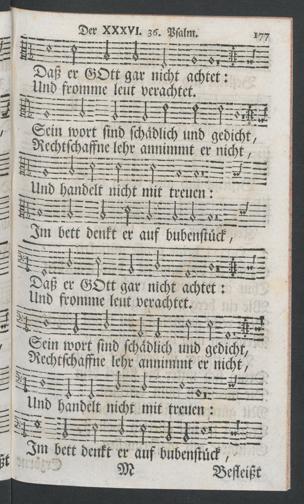 Der XXXVI. 36. Psalm. 177
Daß er GOtt gar nicht achtet :
Und fromme leut verachtet.
Sein wort sind schädlich und gedicht,
Rechtschaffne lehr annimmt er nicht,
Und handelt nicht mit treuen :
Im bett denkt er auf bubenstück,
Daß er GOtt gar nicht achtet :
Und fromme leut verachtet.
Sein wort sind schädlich und gedicht,
Rechtschaffne lehr annimmt er nicht,
Und handelt nicht mit treuen :
Im bett denkt er auf bubenstück,
M Befleißt